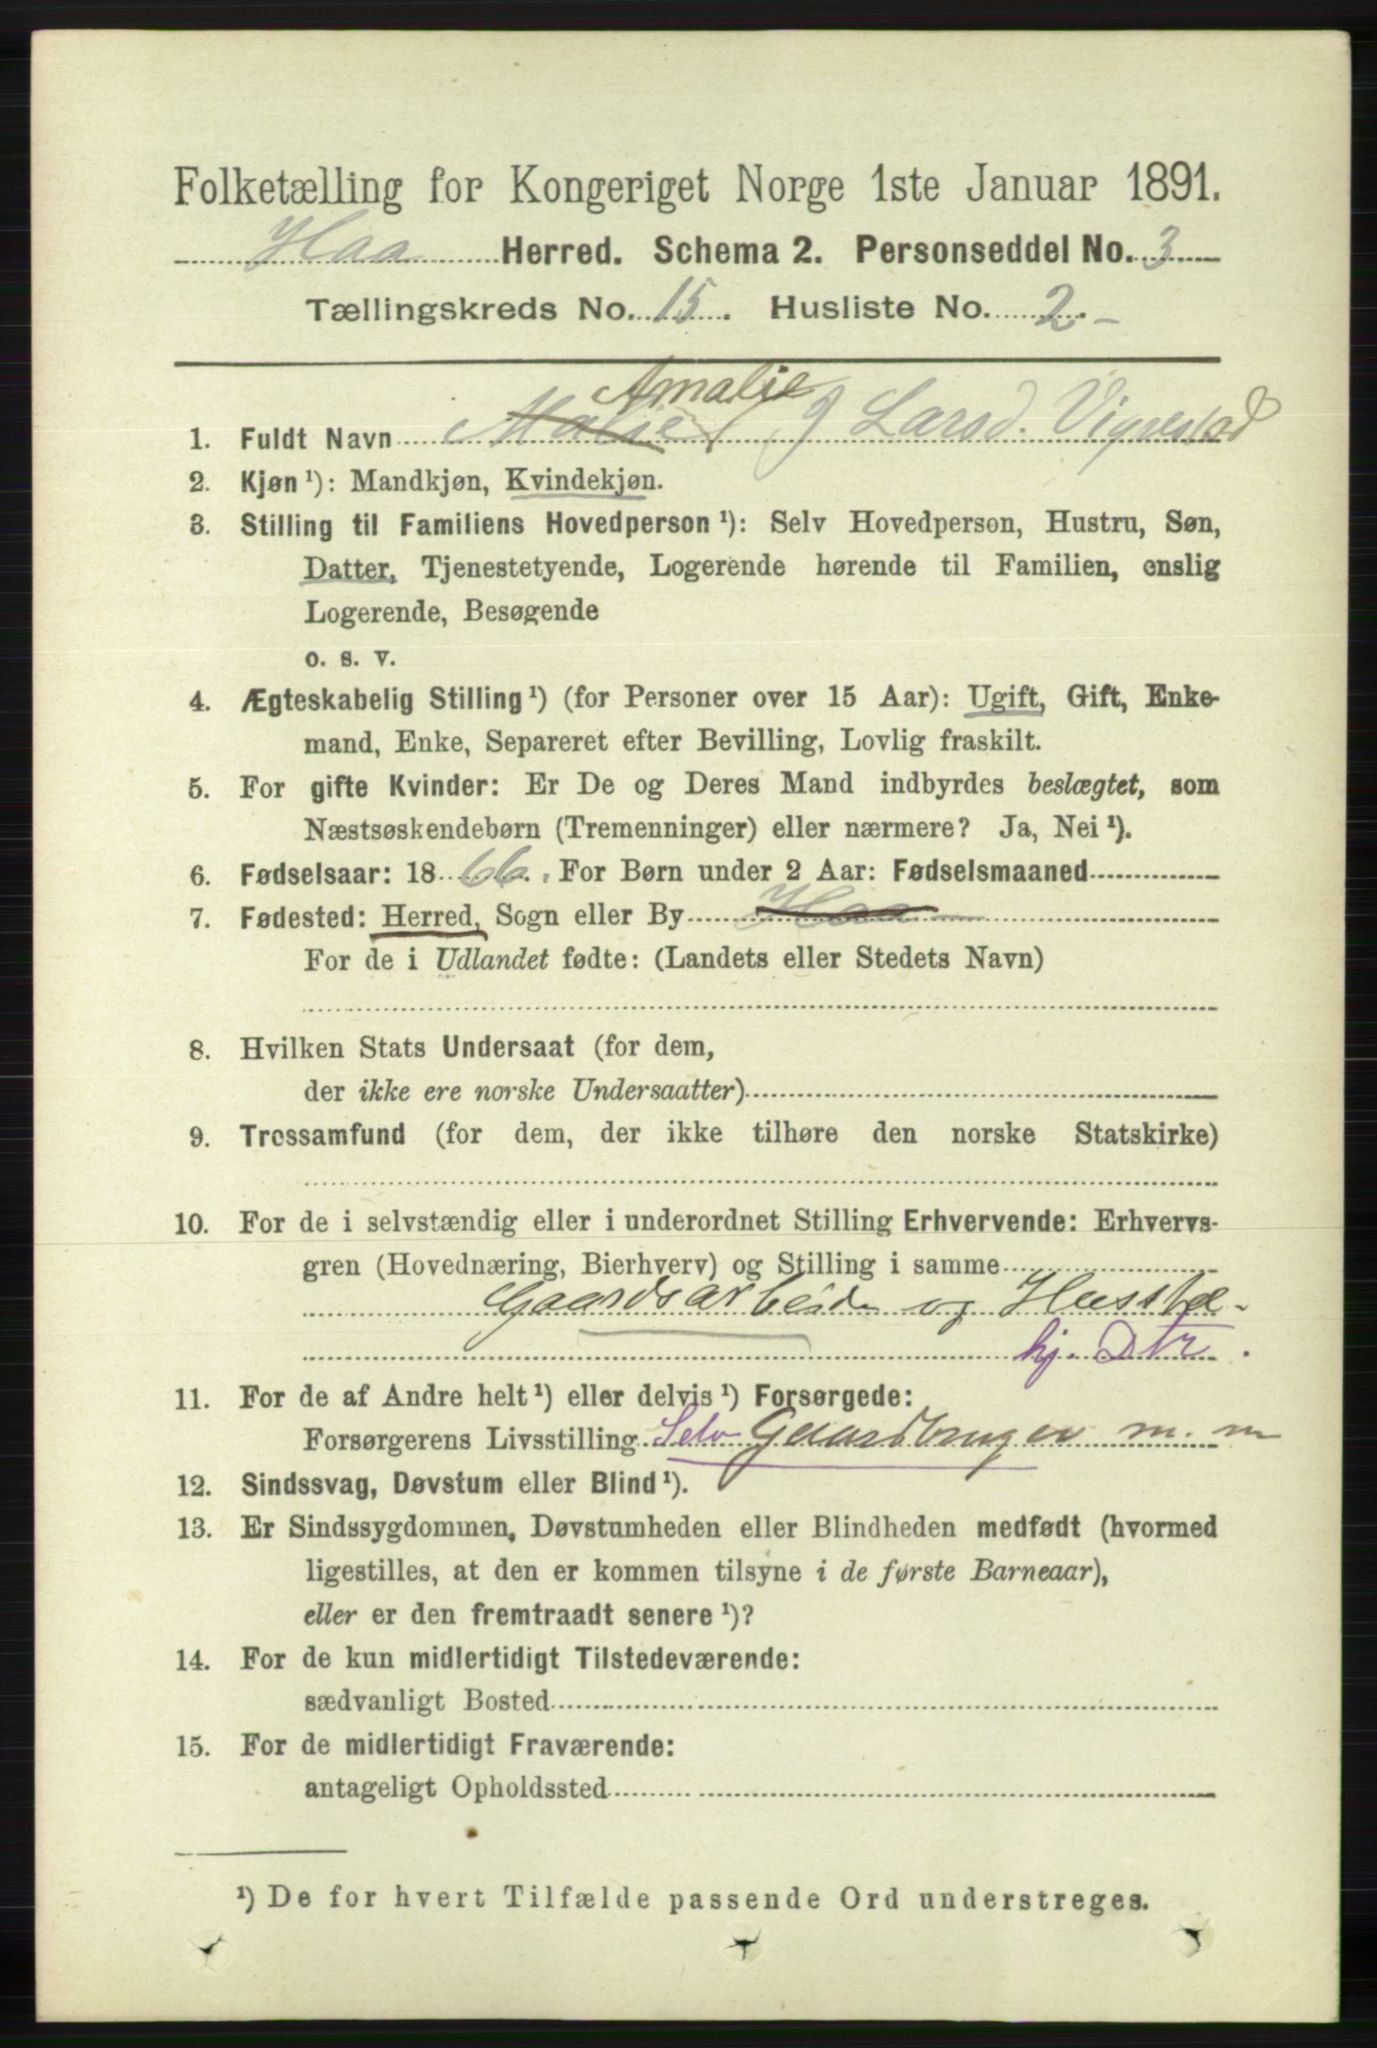 Folketælling for Kongeriget Norge 1ste Januar 1891.
Haa Herred. Schema 2. Personseddel No. 3
Tællingskreds No. 15. Husliste No. 2.
Amalie
1. Fuldt Navn Malie J Larsd. Vigrestad
2. Kjøn ¹): Mandkjøn, Kvindekjøn.
3. Stilling til Familiens Hovedperson ¹): Selv Hovedperson, Hustru, Søn,
Datter, Tjenestetyende, Logerende hørende til Familien, enslig
Logerende, Besøgende
o. s. v.
4. Ægteskabelig Stilling ¹) (for Personer over 15 Aar): Ugift, Gift, Enke-
mand, Enke, Separeret efter Bevilling, Lovlig fraskilt.
5. For gifte Kvinder: Er De og Deres Mand indbyrdes beslægtet, som
Næstsøskendebørn (Tremenninger) eller nærmere? Ja, Nei ¹).
6. Fødselsaar: 1866. For Børn under 2 Aar: Fødselsmaaned
7. Fødested: Herred, Sogn eller By Haa
For de i Udlandet fødte: (Landets eller Stedets Navn)
8. Hvilken Stats Undersaat (for dem,
der ikke ere norske Undersaatter)
9. Trossamfund (for dem, der ikke tilhøre den norske Statskirke)
10. For de i selvstændig eller i underordnet Stilling Erhvervende: Erhvervs-
gren (Hovednæring, Bierhverv) og Stilling i samme
Gaardsarbeide og Husstel
hj. Dtr.
11. For de af Andre helt ¹) eller delvis ¹) Forsørgede:
Forsørgerens Livsstilling Selv Gaardbruger m. m
12. Sindssvag, Døvstum eller Blind ¹).
13. Er Sindssygdommen, Døvstumheden eller Blindheden medfødt (hvormed
ligestilles, at den er kommen tilsyne i de første Barneaar),
eller er den fremtraadt senere ¹)?
14. For de kun midlertidigt Tilstedeværende:
sædvanligt Bosted
15. For de midlertidigt Fraværende:
antageligt Opholdssted
¹) De for hvert Tilfælde passende Ord understreges.